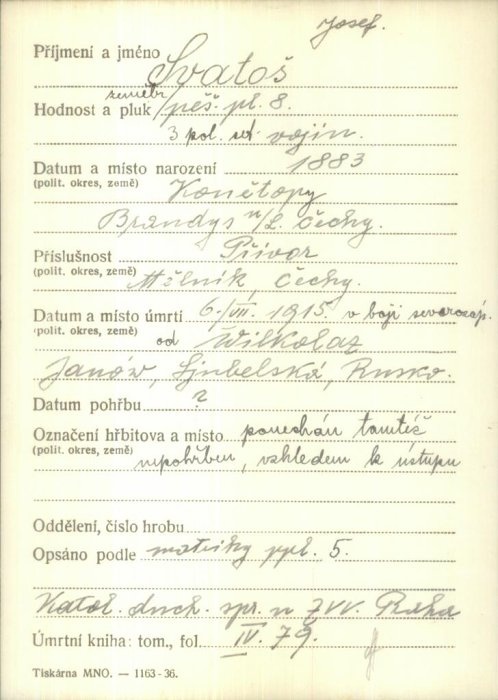 Josef.
Příjmení a jméno Svatoš
zeměbr.
Hodnost a pluk pěš. pl. 8.
3 pol. set. vojín.
Datum a místo narození 1883
(polit. okres, země) Konětopy
Brandýs n/L. Čechy.
Příslušnost Přívor
(polit. okres, země) Mělník, Čechy.
Datum a místo úmrtí 6./VII. 1915. v boji severozáp.
(polit. okres, země) od Wilkolaz
Janów, Ljubelská, Rusko.
Datum pohřbu ?
Označení hřbitova a místo ponechán tamtéž
(polit. okres, země) nepohřben, vzhledem k ústupu
Oddělení, číslo hrobu
Opsáno podle matriky ppl. 5.
Katol. duch. spr. u ZVV. Praha
Úmrtní kniha: tom., fol. IV. 79.
Tiskárna MNO. — 1163-36.